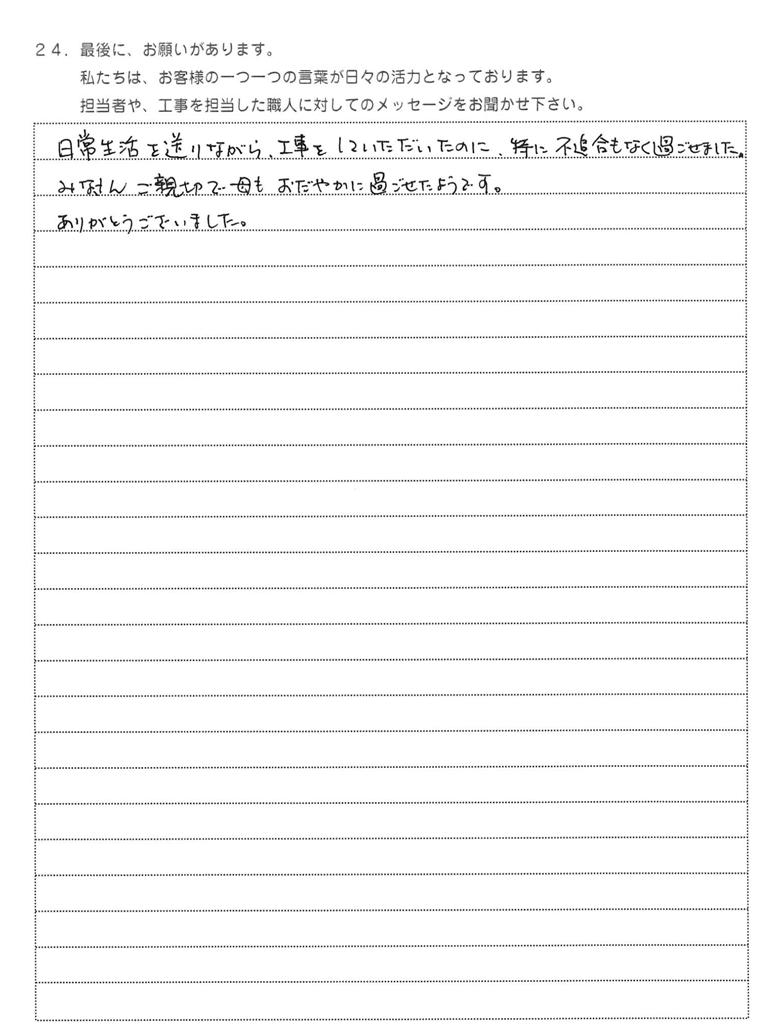 ２４．最後に、お願いがあります。
私たちは、お客様の一つ一つの言葉が日々の活力となっております。
担当者や、工事を担当した職人に対してのメッセージをお聞かせ下さい。
日常生活を送りながら、工事をしていただいたのに、特に不追合もなく過ごせました。
みなさんご親切で母もおだやかに過ごせたようです。
ありがとうございました。